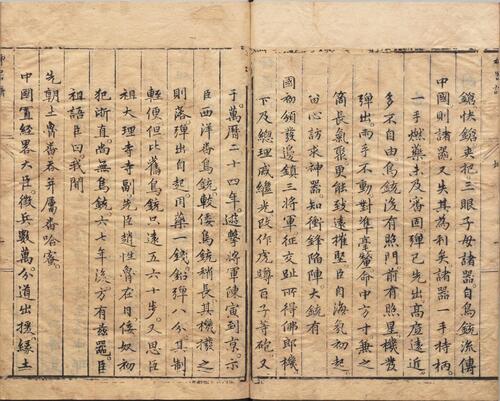 鎗快鎗夾把三眼子母諸器自鳥銃流傳
中國則諸器又失其為利矣諸器一手持柄
一手燃藥未及審固彈已先出高底遠近
多不自由鳥銃後有照門前有照星機發
彈出兩手不動對準毫釐命中方寸兼之
筒長氣聚更能致遠摧堅臣自海氛初起
留心訪求神器知衝鋒陷陣大銃有
國初頒發邊鎮三將軍征交趾所得佛郎機
下及總理戚繼光改作虎蹲百子等砲又
于萬曆二十四年遊擊將軍陳寅到京示
臣西洋番鳥銃較倭鳥銃稍長其機撥之
則落彈出自起用藥一錢鉛彈八分其制
輕便但比舊鳥銃只遠五六十步又思臣
祖大理寺寺副先臣趙性魯在日倭奴初
犯浙直尚無鳥銃六七年後方有茲器臣
祖語臣曰我聞
先朝土魯番吞并屬番哈蜜
中國置經畧大臣徵兵數萬分道出援緣土